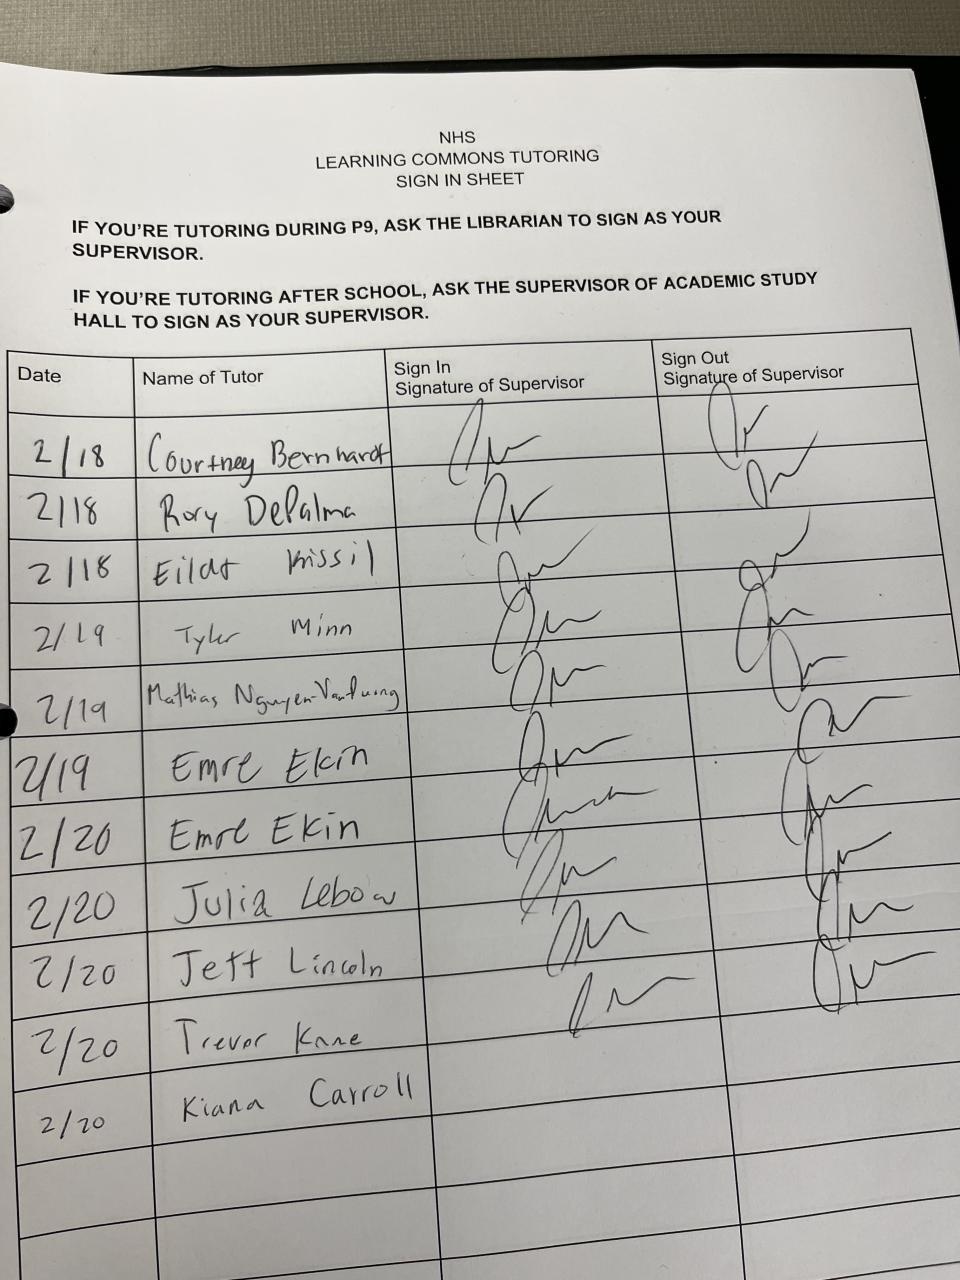 NHS
LEARNING COMMONS TUTORING
SIGN IN SHEET
IF YOU'RE TUTORING DURING P9, ASK THE LIBRARIAN TO SIGN AS YOUR
SUPERVISOR.
IF YOU'RE TUTORING AFTER SCHOOL, ASK THE SUPERVISOR OF ACADEMIC STUDY
HALL TO SIGN AS YOUR SUPERVISOR.
Date Name of Tutor Sign In Signature of Supervisor Sign Out Signature of Supervisor
2/18 Courtney Bernhardt
2/18 Rory DePalma
2/18 Kissil
2/19 Tyler Minn
2/19 Mathias
2/19 Emre Ekin
2/20 Emre Ekin
2/20 Julia Lebow
2/20 Jeff Lincoln
2/20 Trevor Kane
2/20 Kiana Carroll